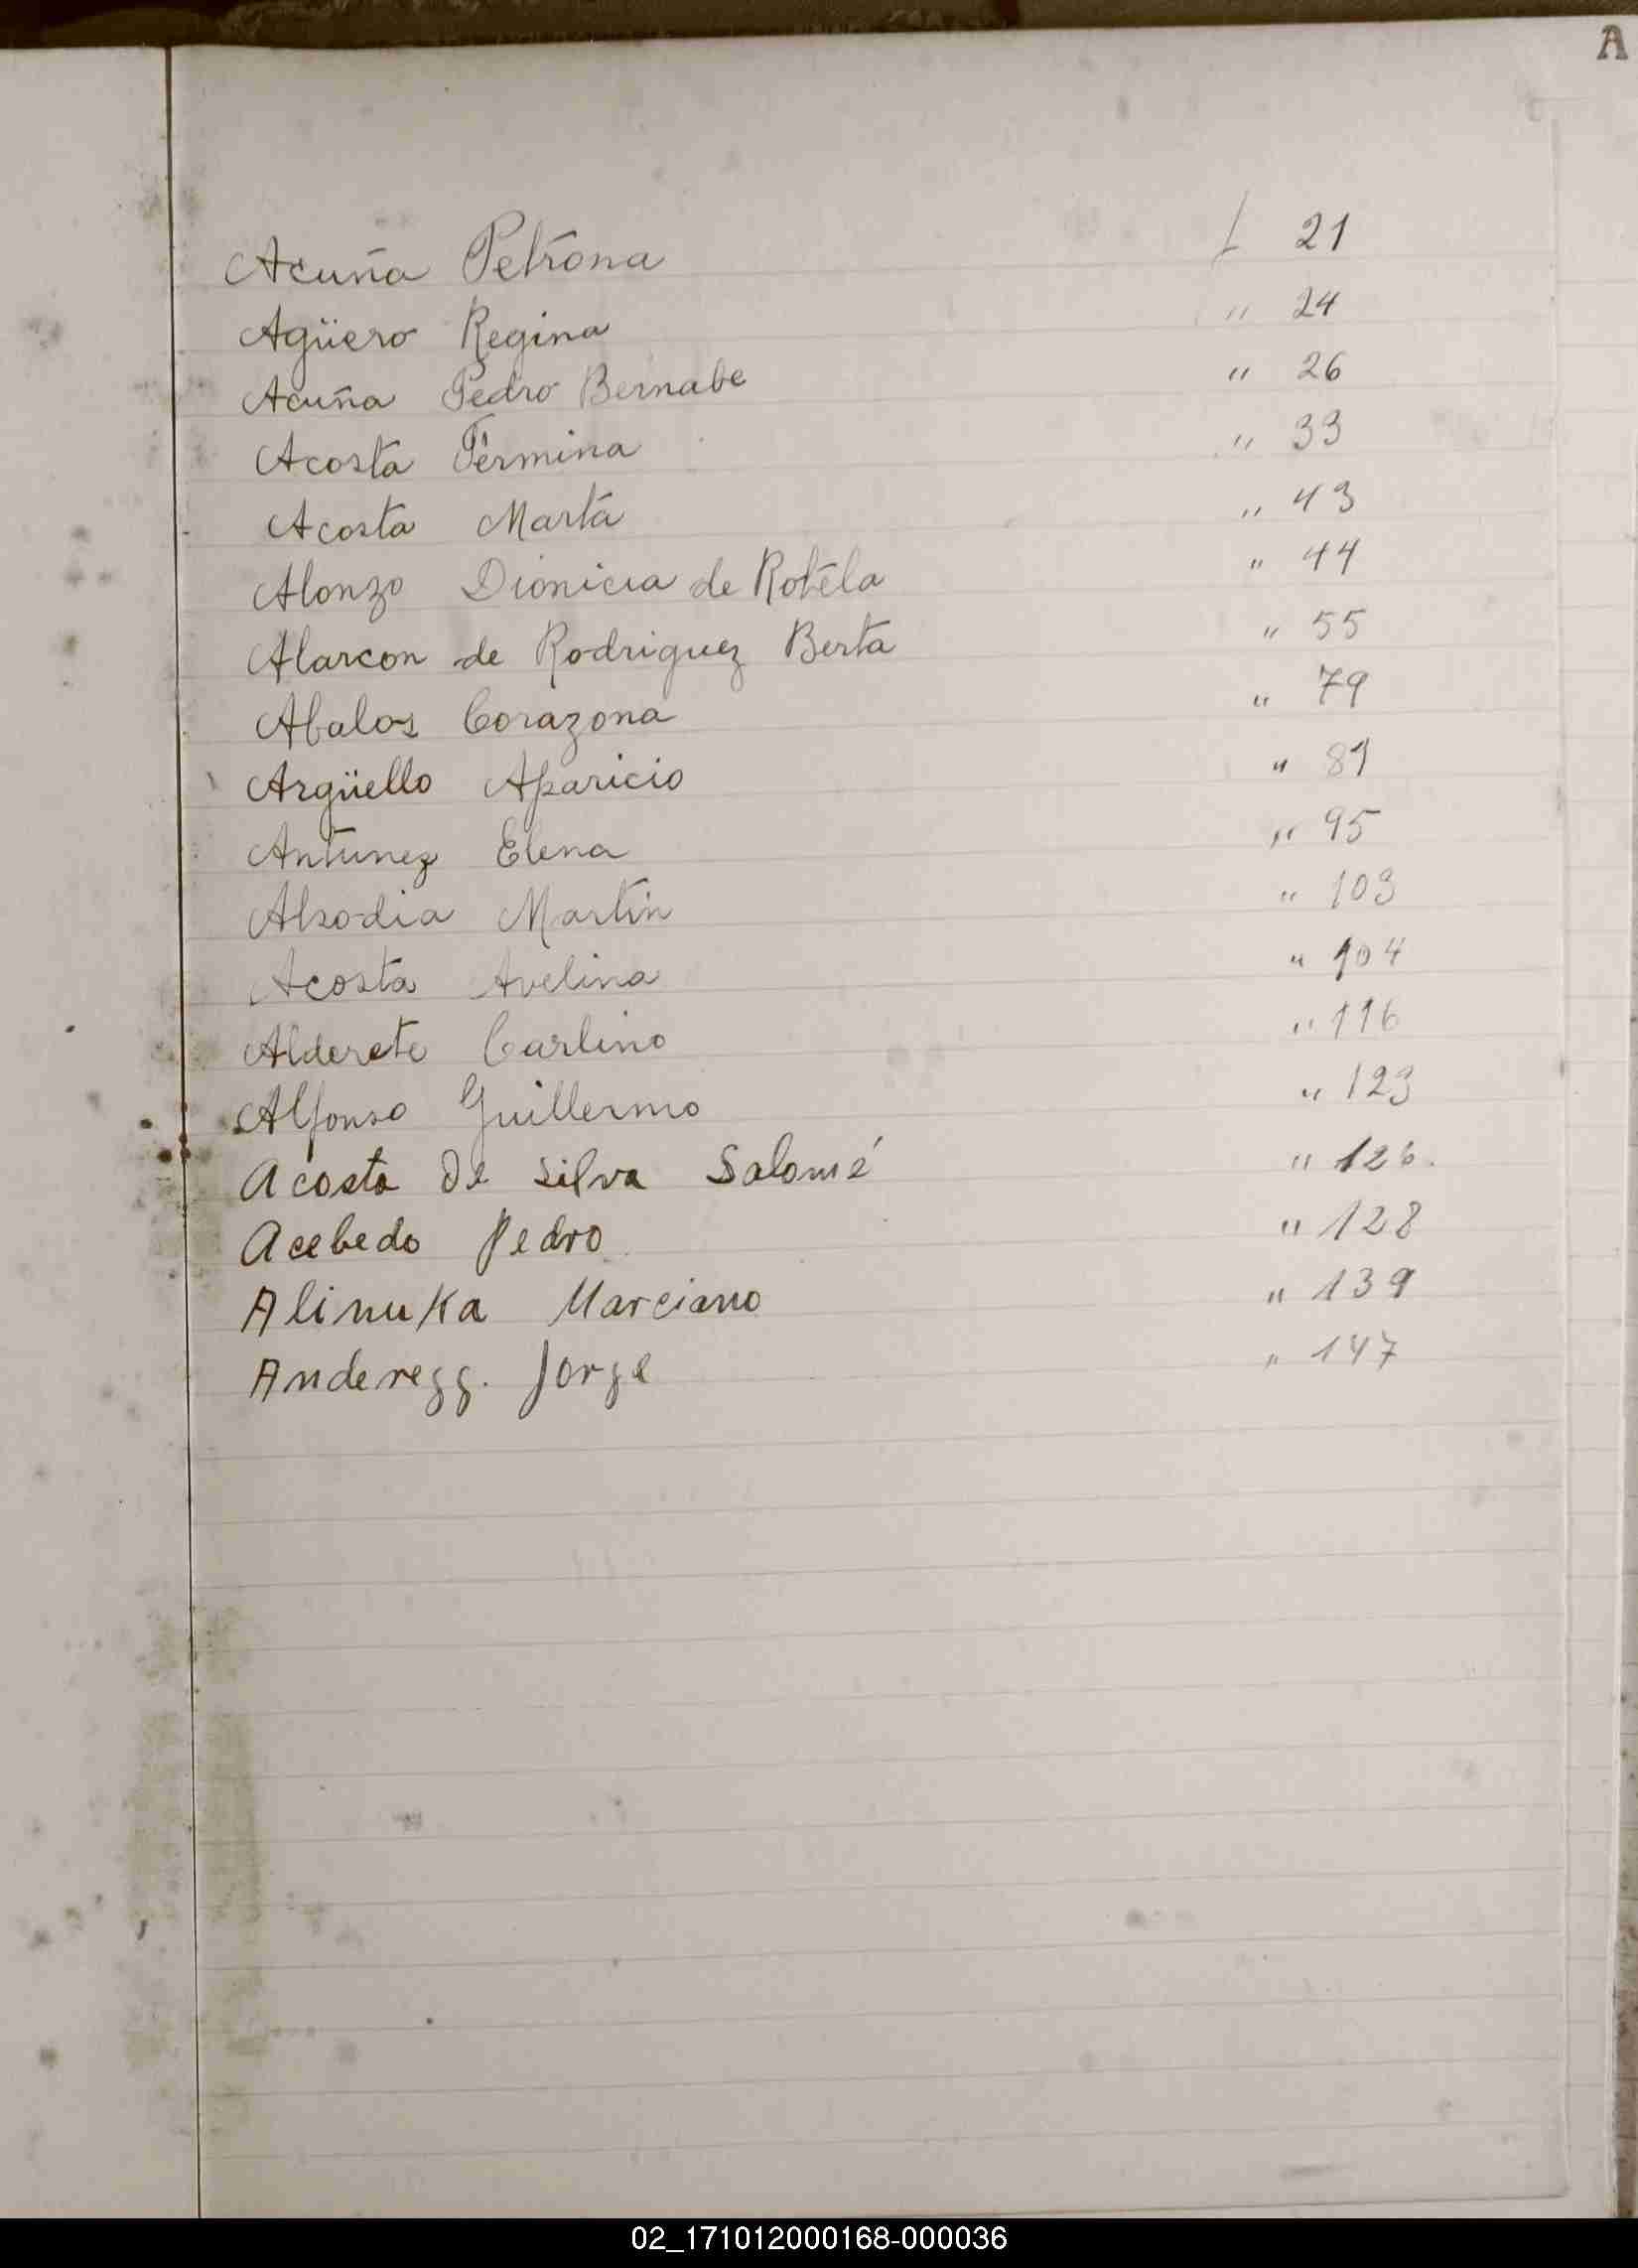 A
Acuña Petrona f 21
Agüero Regina " 24
Acuña Pedro Bernabe " 26
Acosta Fermina " 33
Acosta Marta " 43
Alonzo Dionicia de Robéla " 44
Alarcon de Rodriguez Berta " 55
Abalos Corazona " 79
Argüello Aparicio " 81
Antunez Elena " 95
Alsodia Martin " 103
Acosta Avelina " 104
Alderete Carlino " 116
Alfonso Guillermo " 123
Acosta De Silva Salomé " 126
Acebedo Pedro " 128
Alinuka Marciano " 139
Anderegg. Jorge " 147
02_171012000168-000036